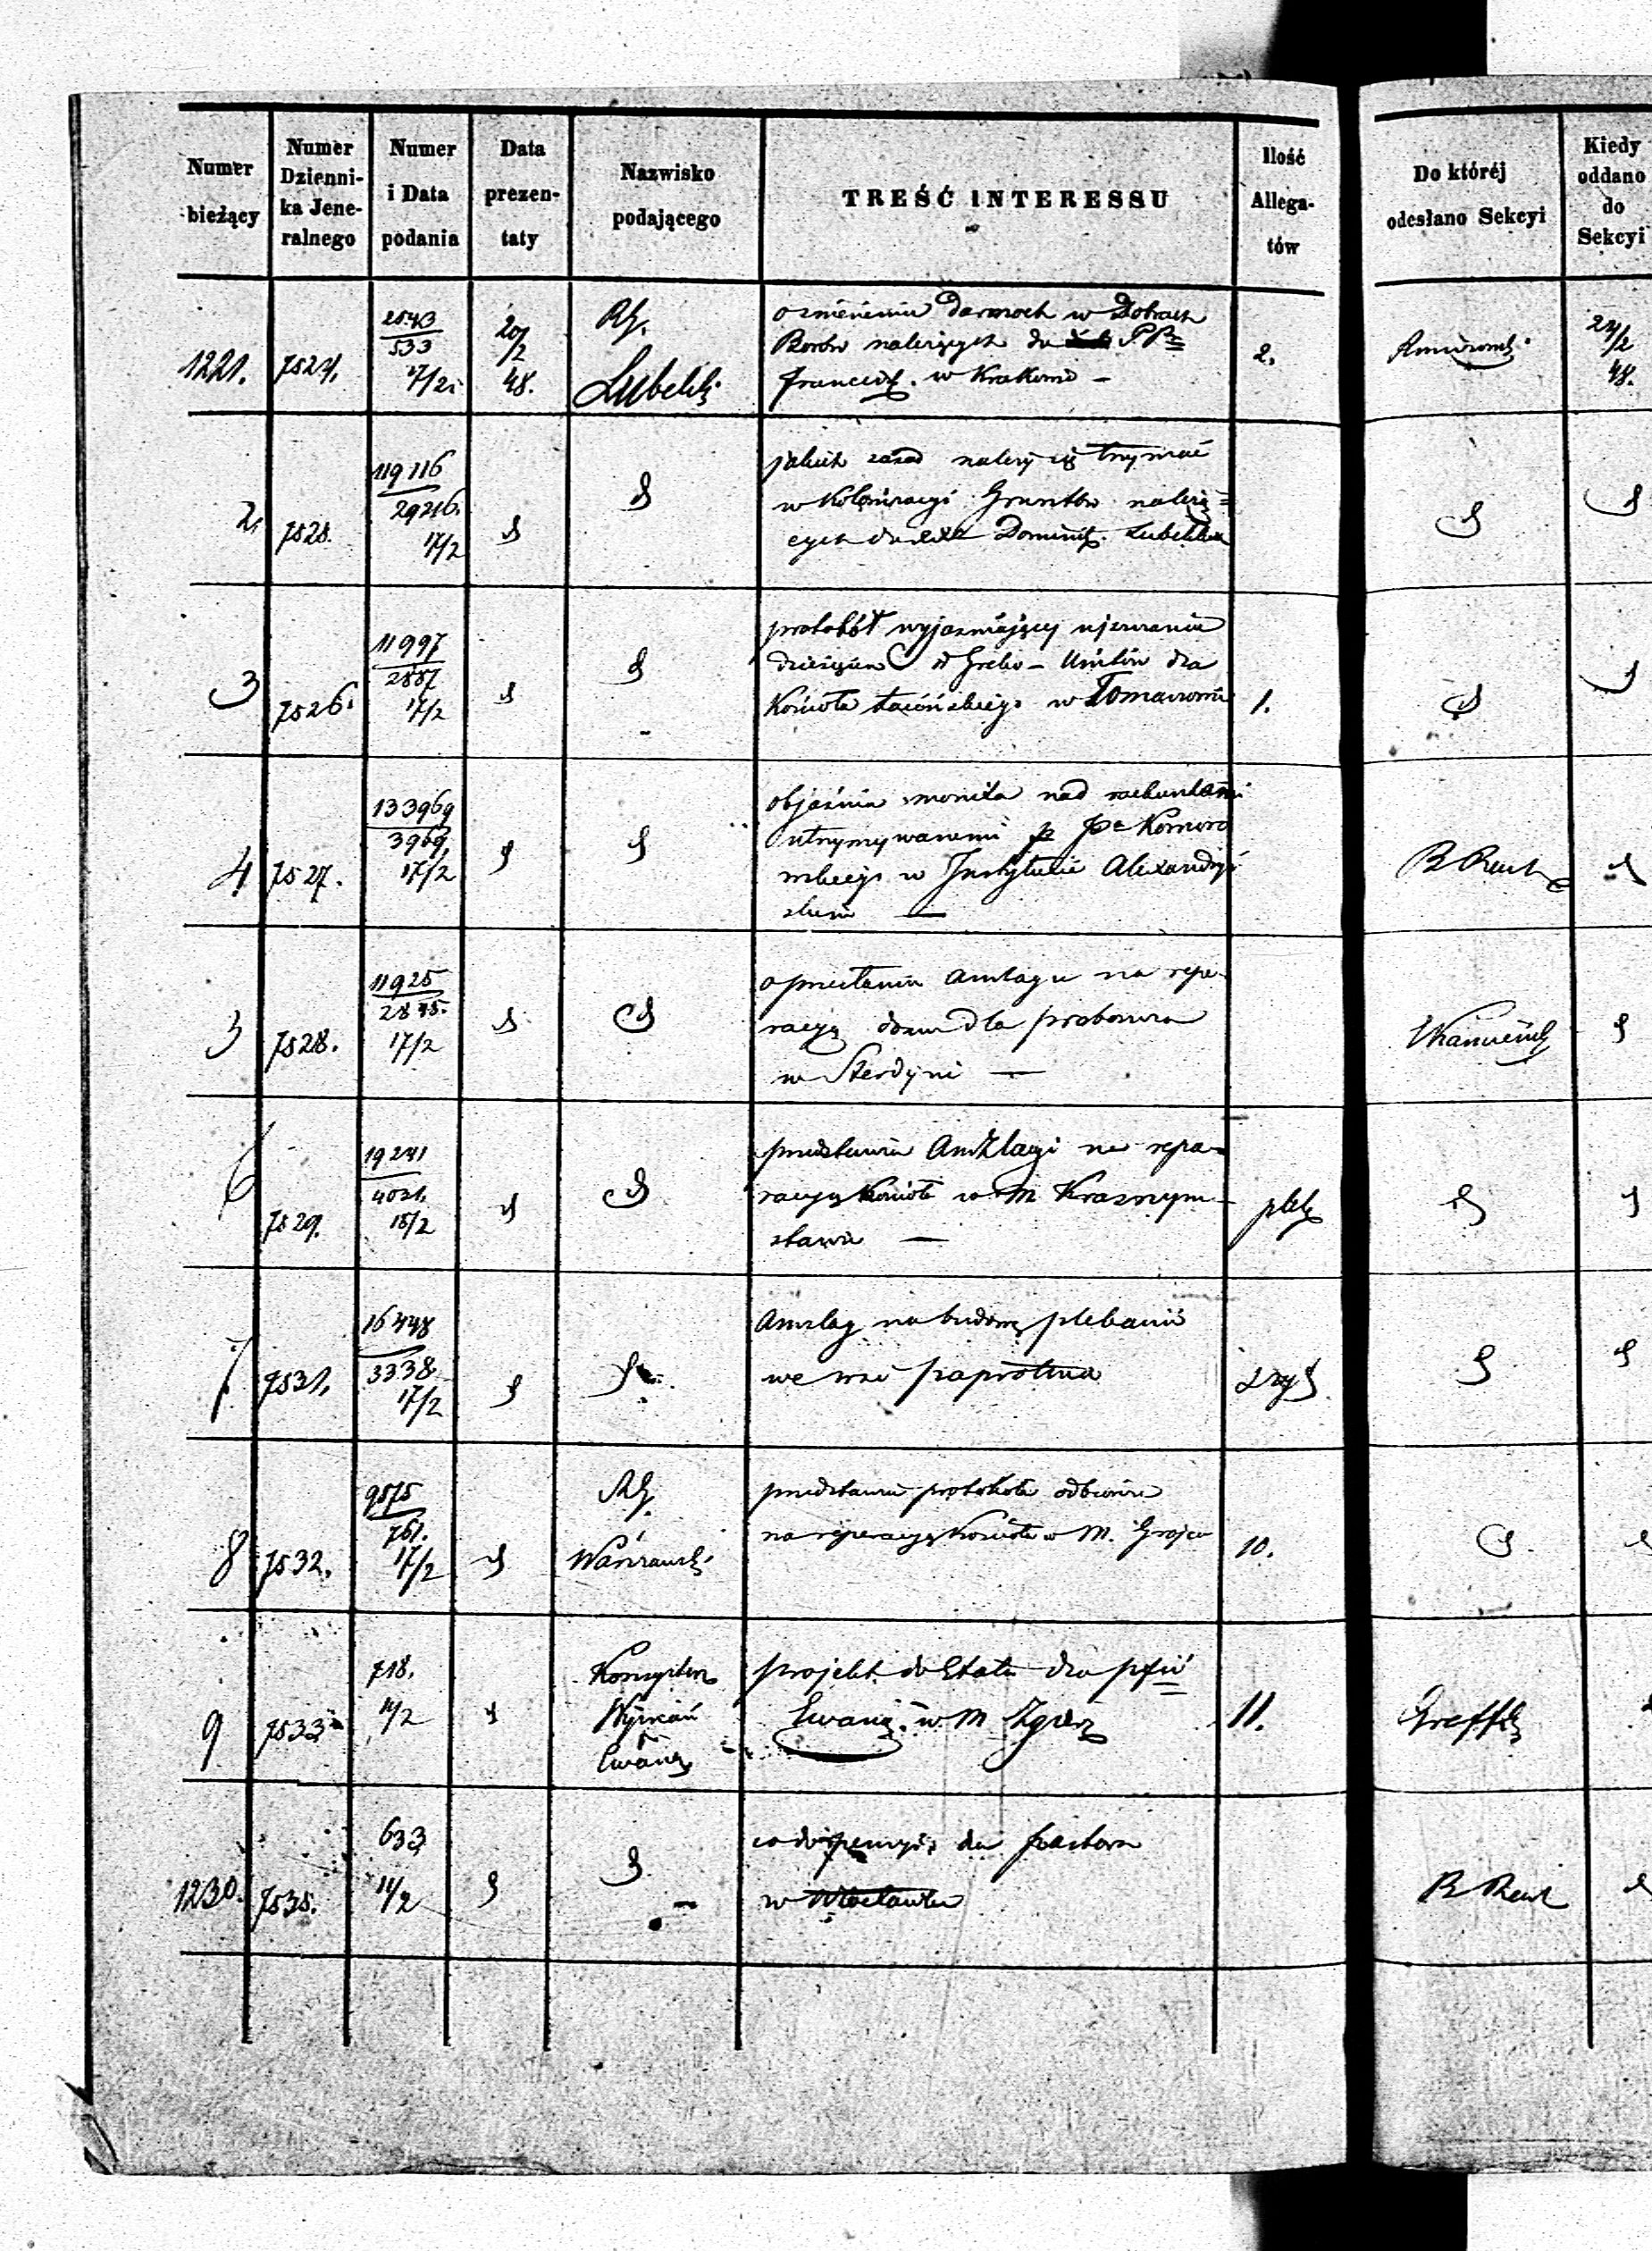 Numer bieżący
Numer Dzienni-ka Jene-ralnego
Numer i Data podania
Data prezen-taty
Nazwisko podającego
TREŚĆ INTERESSU
Ilość Allega-tów
Do któréj odesłano Sekcyi
Kiedy oddano do Sekcyi
1221.
7524.
2543
533
17/2
20/2
48.
Rg.
Lubelsk
o zniesieniu darmoch w Dobrach
Borów należących do PP
Francisk. w Krakowie –
2.
24/2
48.
2.
7525.
119116
29216.
17/2
jakich zasad należy się trzymać
w Kolonizacyi Gruntów należą=
cych Dominik. Lubelskich
3
7526.
11997
2887
17/2
protokół wyjaśniający
dziesięcin od Greko – Unitów dla
Kościoła Łacińskiego w Tomaszowie
1.
4
7527.
133969
3969.
17/2
objaśnia monita nad rachunkami
utrzymywanemi p Pa Komoro
wskiego w Instytucie Alexandryj
skim —
B Rach
5
7528.
11925
2875.
17/2
o przesłaniu Anszlagu na repe-
racyę domu dla proboszcza
w Sterdyni —
6
7529.
19241
4021.
18/2
przedstawia Anszlagi na repa-
racyę Kościoła w M Krasnym-
stawie —
7.
7531.
16448
3338
17/2
Anszlag na budowę plebanii
we wsi Paprotnia
8
7532.
9575
761.
17/2
Rg.
Warszawsk
przedstawia protokoła odbiorcze
na reperacyę Kościoła w M. Grojcu
10.
9
7533
718.
11/2
Konsystorz
Wyznań
Ewang
projekt do Etatu dla pfii
Ewang. w M Zgierz
11.
Greffen
1230.
7535.
633
11/2
co do pensyi dla pastora
w Włocławku
B Rach